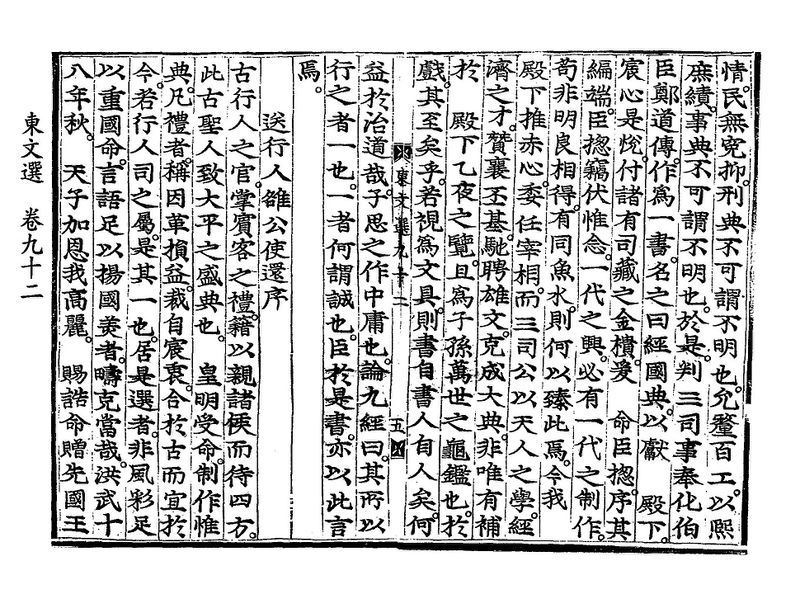 情民無寃抑刑典不可謂不明也允釐百工以熙
庶績事典不可謂不明也於是判三司事奉化伯
臣鄭道傳作爲一書名之曰經國典以獻 殿下
宸心是悅付諸有司藏之金樻爰 命臣摠序其
編端臣摠竊伏惟念一代之興必有一代之制作
苟非明良相得有同魚水則何以臻此焉今我
殿下推赤心委任宰相而三司公以天人之學經
濟之才贊襄丕基馳聘雄文克成大典非唯有補
於 殿下乙夜之覽且爲子孫萬世之龜鑑也於
戱其至矣乎若視爲文具則書自書人自人矣何
東文選九十二 五
益於治道哉子思之作中庸也論九經曰其所以
行之者一也一者何謂誠也臣於是書亦以此言
焉
送行人雒公使還序
古行人之官掌賓客之禮藉以親諸侯而待四方
此古聖人致大平之盛典也 皇明受命制作惟
典凡禮者稱因革損益裁自宸衷合於古而宜於
今若行人司之屬是其一也居是選者非風彩足
以重國命言語足以揚國美者疇克當哉洪武十
八年秋 天子加恩我高麗 賜誥命贈先國王
東文選 卷九十二